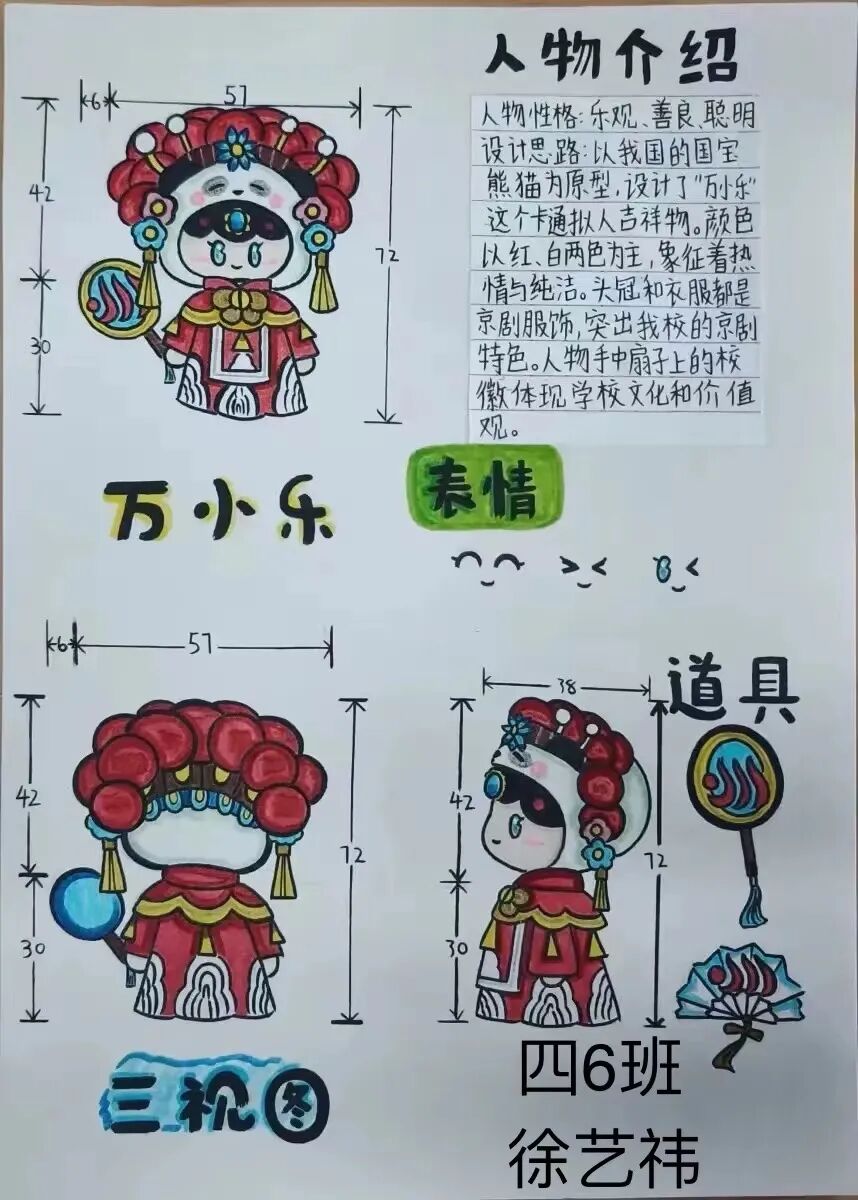 人物介绍
人物性格：乐观、善良、聪明
设计思路：以我国的国宝
熊猫为原型，设计了"万小乐"
这个卡通拟人吉祥物。颜色
以红、白两色为主，象征着热
情与纯洁。头冠和衣服都是
京剧服饰，突出我校的京剧
特色。人物手中扇子上的校
徽体现学校文化和价值
观。
6
57
42
30
72
万小乐
表情
6
57
42
30
72
38
42
30
72
道具
三视图
四6班
徐艺祎